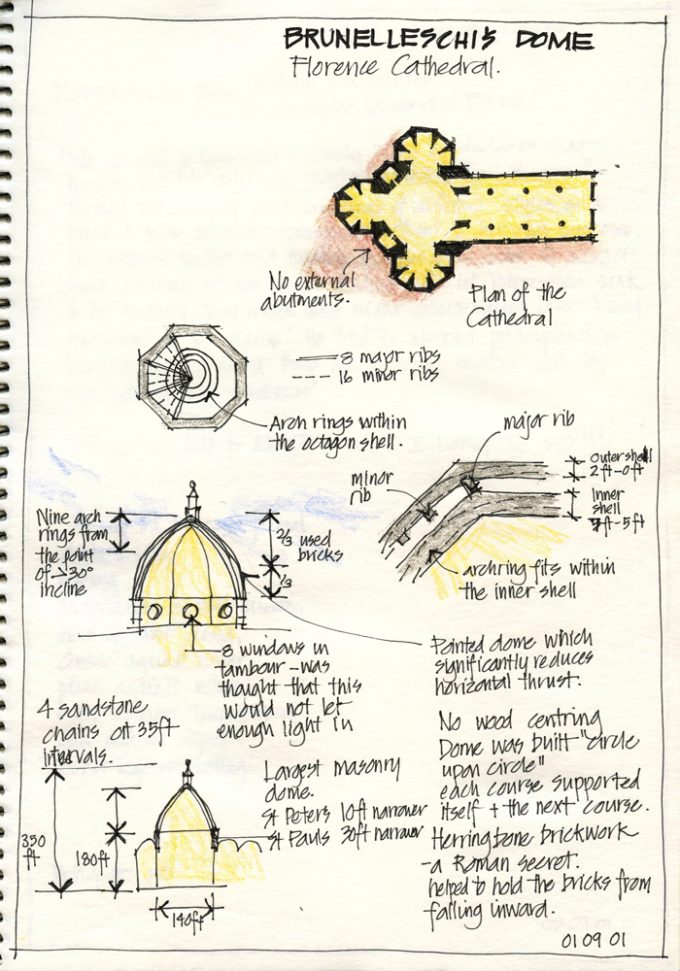 BRUNELLESCHI'S DOME
Florence Cathedral.
No external
abutments.
Plan of the
Cathedral
8 major ribs
16 minor ribs
Arch rings within
the octagon shell.
major rib
minor
rib
Outer shell
2ft-0ft
Inner
shell
7ft-5ft
archring fits within
the inner shell
Nine arch
rings from
the point
of >30°
incline
2/3 used
bricks
1/3
8 windows in
tambour - was
thought that this
would not let
enough light in
Pointed dome which
significantly reduces
horizontal thrust.
4 sandstone
chains at 35ft
intervals.
350
ft
180ft
140ft
Largest masonry
dome.
St Peter's 10ft narrower
St Pauls 30ft narrower
No wood centring
Dome was built "circle
upon circle"
each course supported
itself + the next course.
Herringbone brickwork
- a Roman secret.
helped to hold the bricks from
falling inward.
01 09 01